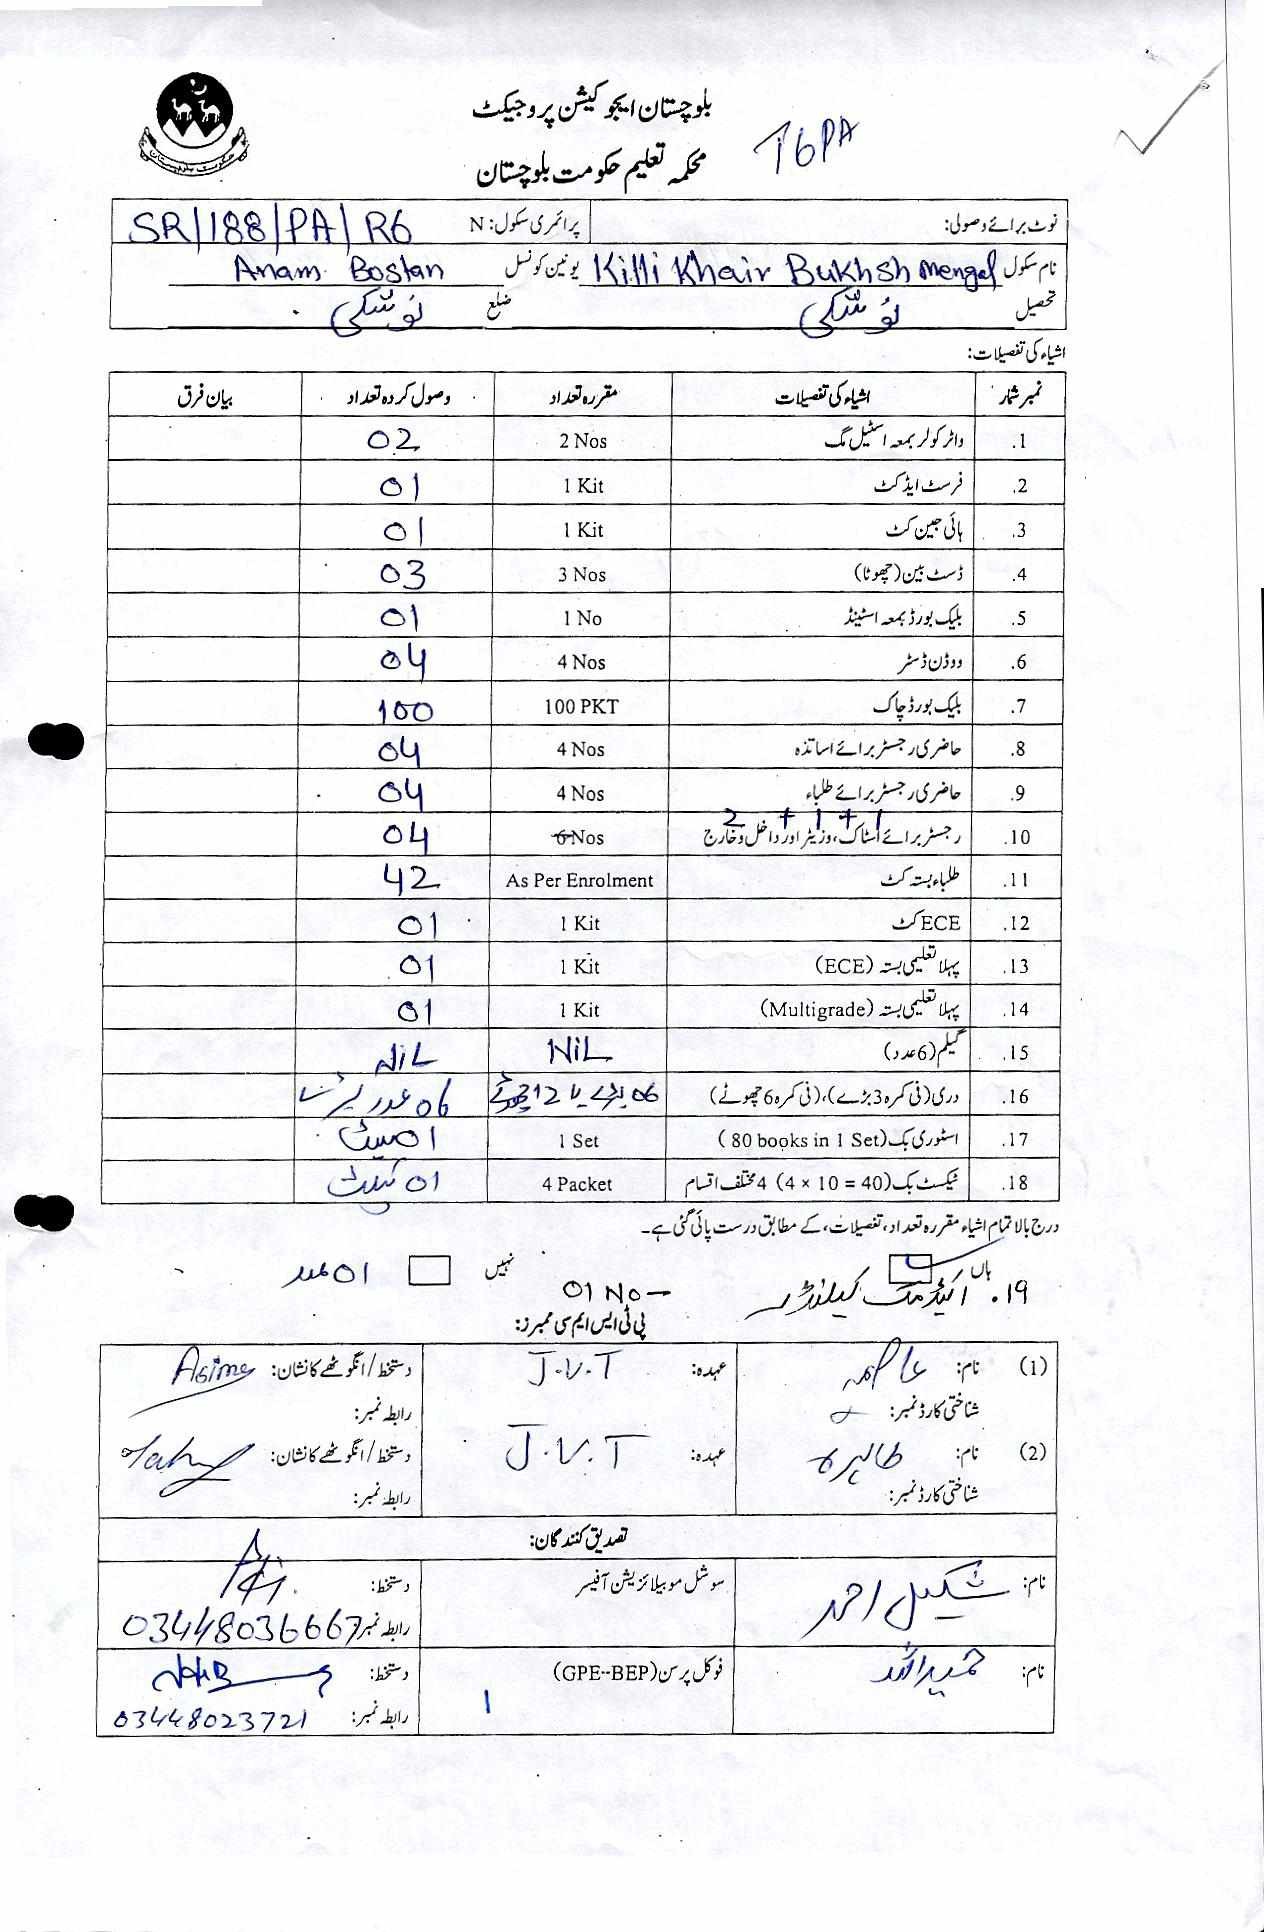 بلوچستان ایجوکیشن پروجیکٹ
محکمہ تعلیم حکومت بلوچستان
TGPA
نوٹ برائے وصولی: پرائمری سکول: N SR/188/PA/R6
نام سکول Killi Khair Bukhsh Mengal یونین کونسل Anam Bostan
تحصیل نوشکی ضلع نوشکی
اشیاء کی تفصیلات:
نمبر شمار اشیاء کی تفصیلات مقررہ تعداد وصول کردہ تعداد بیان فرق
1. واٹر کولر بمعہ اسٹیل مگ 2 Nos 02
2. فرسٹ ایڈ کٹ 1 Kit 01
3. ہائی جین کٹ 1 Kit 01
4. ڈسٹ بین (چھوٹا) 3 Nos 03
5. بلیک بورڈ بمعہ اسٹینڈ 1 No 01
6. ووڈن ڈسٹر 4 Nos 04
7. بلیک بورڈ چاک 100 PKT 100
8. حاضری رجسٹر برائے اساتذہ 4 Nos 04
9. حاضری رجسٹر برائے طلباء 4 Nos 04
2 + 1 + 1
10. رجسٹر برائے اسٹاک، وزیٹر اور داخل و خارج 6 Nos 04
11. طلباء بستہ کٹ As Per Enrolment 42
12. ECE کٹ 1 Kit 01
13. پہلا تعلیمی بستہ (ECE) 1 Kit 01
14. پہلا تعلیمی بستہ (Multigrade) 1 Kit 01
15. گیلم (6 عدد) NiL NiL
16. دری (فی کمرہ 3 بڑے)، (فی کمرہ 6 چھوٹے) 06 بڑے یا 12 چھوٹے 06 عدد
17. اسٹوری بک (80 books in 1 Set) 1 Set 01 سیٹ
18. ٹیکسٹ بک (4 x 10 = 40) 4 مختلف اقسام 4 Packet 01
درج بالا تمام اشیاء مقررہ تعداد، تفصیلات، کے مطابق درست پائی گئی ہے۔
ہاں نہیں
19. اکیڈمک کیلنڈر 01 No 01 عدد
پی ٹی ایس ایم سی ممبرز:
(1) نام: عاصمہ عہدہ: J.V.T دستخط/انگوٹھے کا نشان: Asima
شناختی کارڈ نمبر: رابطہ نمبر:
(2) نام: طاہرہ عہدہ: J.V.T دستخط/انگوٹھے کا نشان:
شناختی کارڈ نمبر: رابطہ نمبر:
تصدیق کنندگان:
نام: شکیل احمد سوشل موبیلائزیشن آفیسر دستخط:
رابطہ نمبر 03448036667
نام: حمید اللہ فوکل پرسن (GPE-BEP) دستخط:
رابطہ نمبر: 03448023721